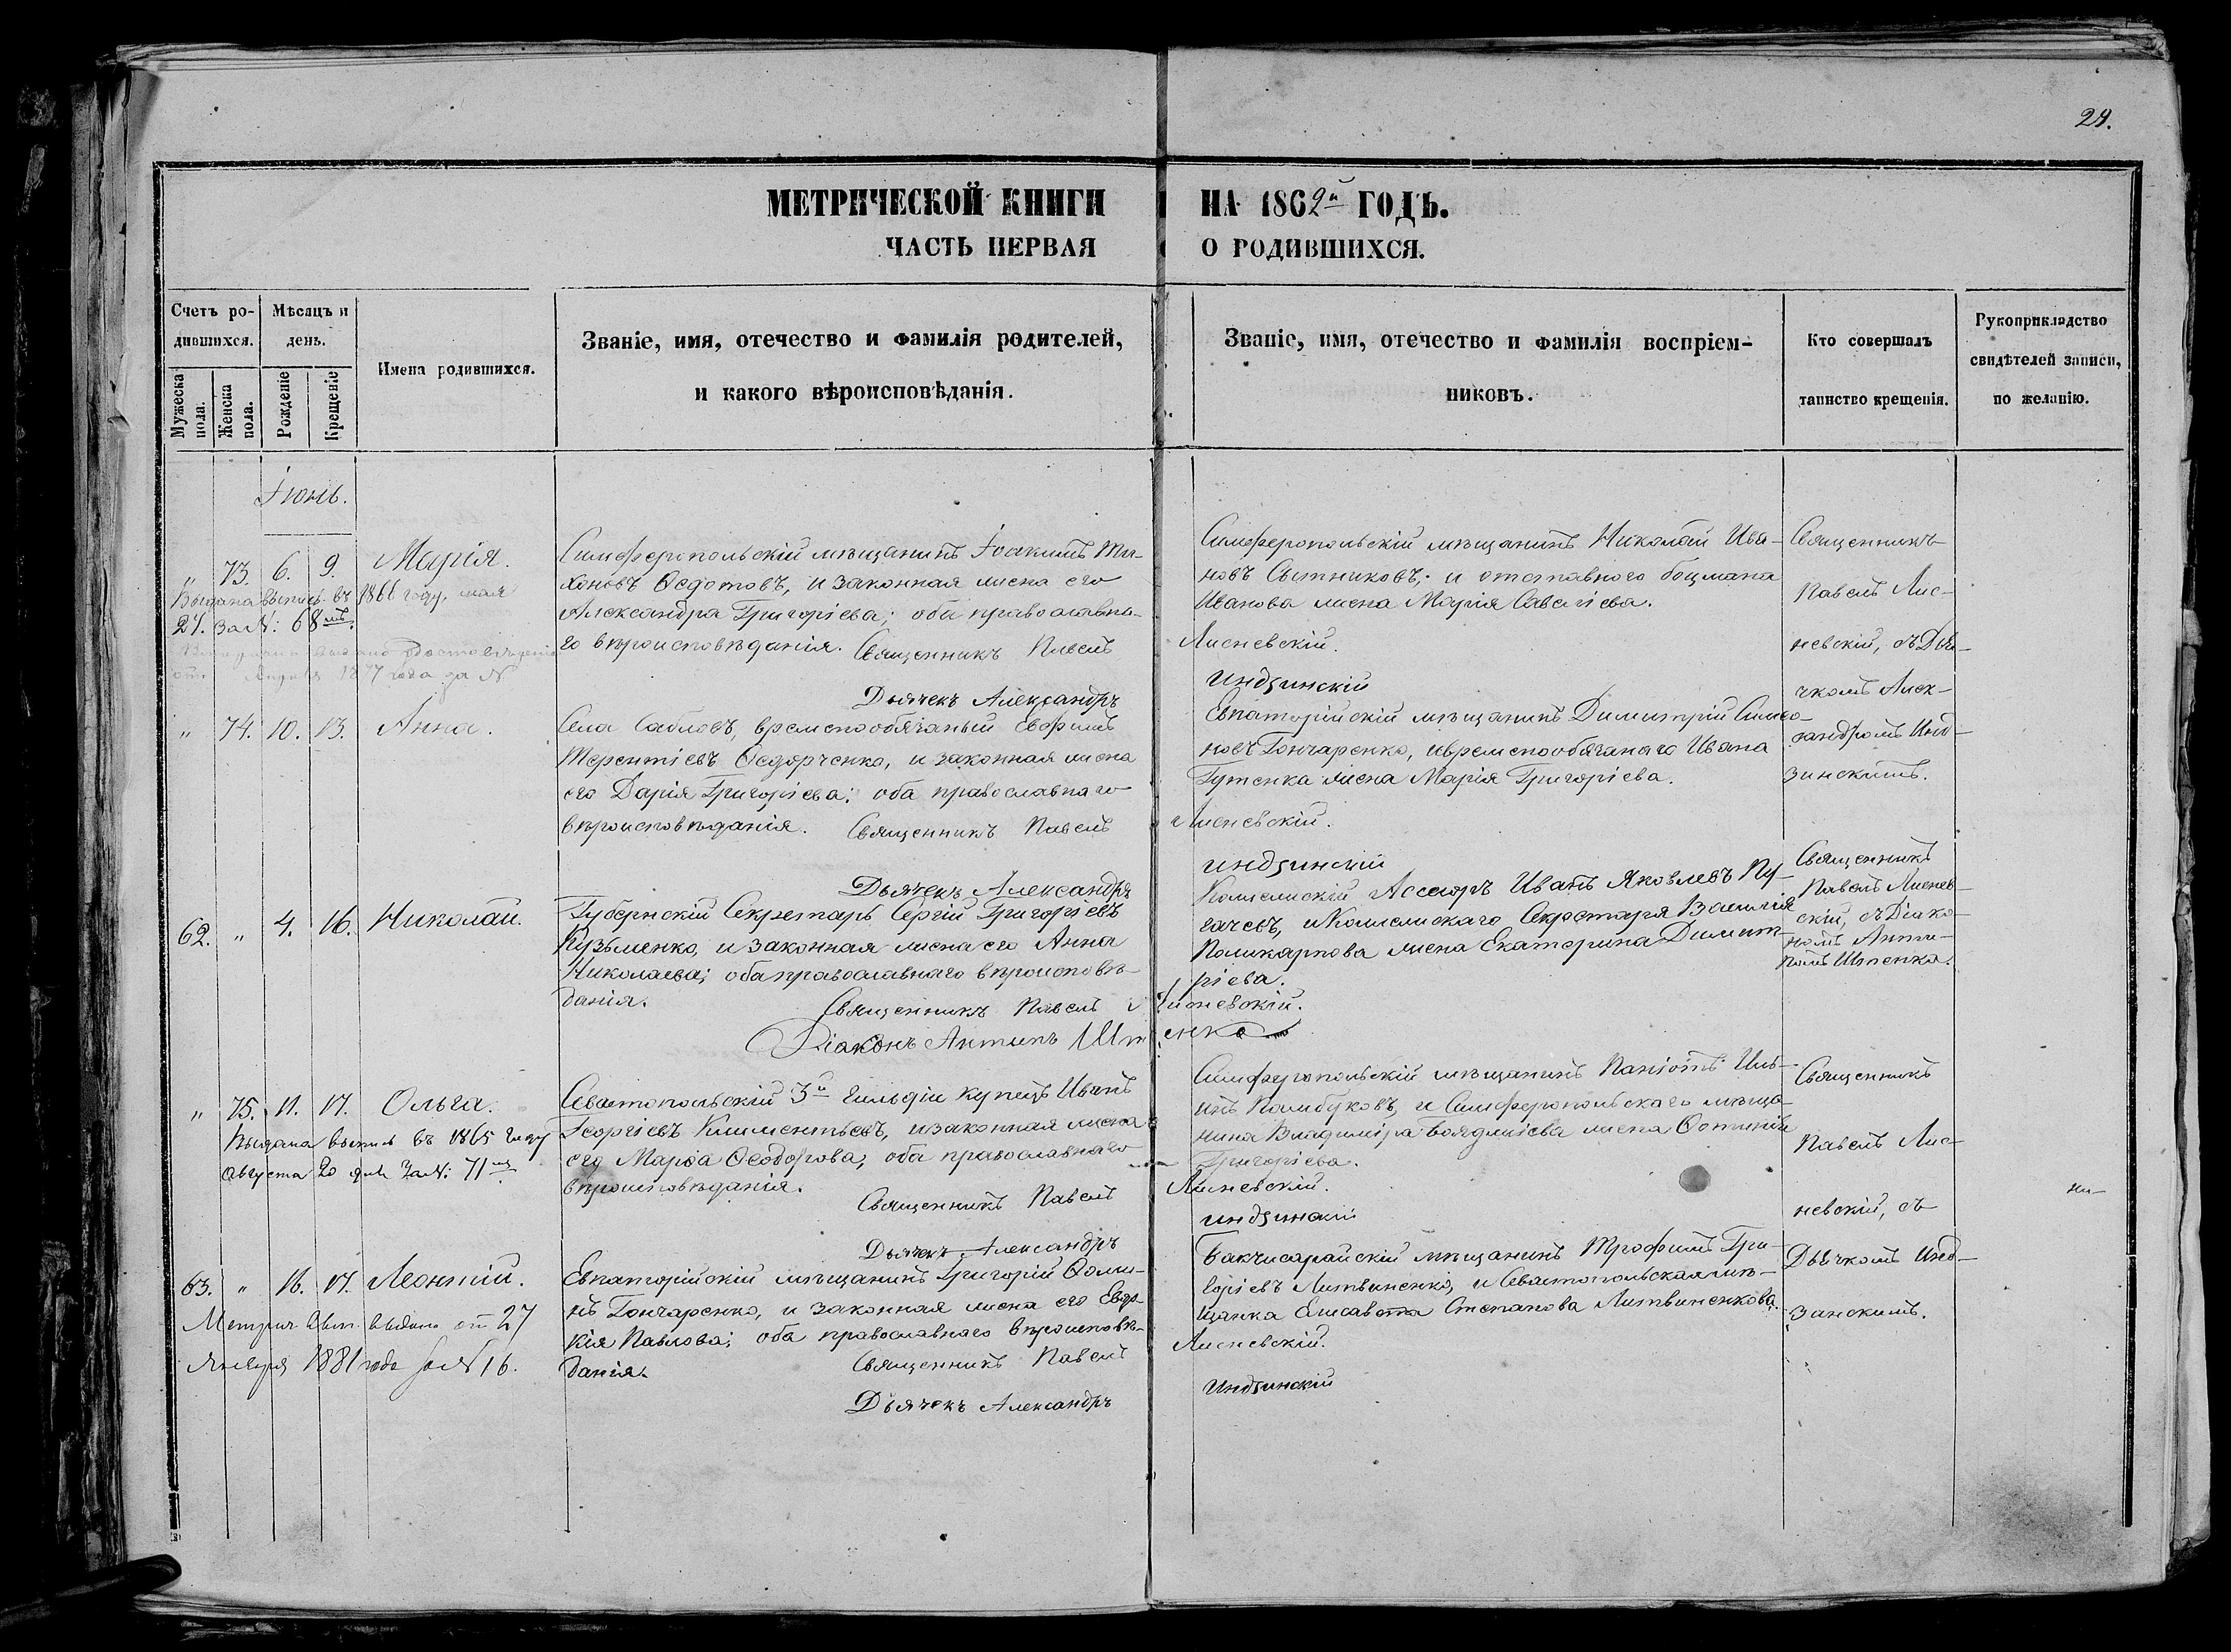 29.
МЕТРИЧЕСКОЙ КНИГИ НА 1862й ГОДЪ.
ЧАСТЬ ПЕРВАЯ О РОДИВШИХСЯ.
Счетъ родившихся.
Мужеска пола.
Женска пола.
Мѣсяцъ и день.
Рожденіе
Крещеніе
Имена родившихся.
Званіе, имя, отечество и фамилія родителей,
и какого вѣроисповѣданія.
Званіе, имя, отечество и фамилія воспріем-
никовъ.
Кто совершалъ
таинство крещенія.
Рукоприкладство
свидѣтелей записи,
по желанію.
Іюнь.
„ 73. 6. 9. Марія.
Выдана выпись въ 1866 году, мая
24. за №: 68мъ.
1877 года за №
Симферопольскій мѣщанинъ Іоакимъ Ти-
хоновъ Ѳедотовъ, и законная жена его
Александра Григоріева; оба православна-
го вѣроисповѣданія. Священникъ Павелъ Лисневскій.
Дьячекъ Александръ Индзинскій
Симферопольскій мѣщанинъ Николай Ива-
новъ Сытниковъ; и отставного боцмана
Иванова жена Марія Савеліева.
Священникъ
Павелъ Лис-
невскій, съ Дья-
чкомъ Алек-
сандромъ Инд-
зинскимъ.
„ 74. 10. 13. Анна.
Села Сабловъ, временообязаный Евфимъ
Терентіевъ Ѳедорченко, и законная жена
его Дарія Григоріева; оба православнаго
вѣроисповѣданія. Священникъ Павелъ Лисневскій.
Дьячекъ Александръ Индзинскій
Евпаторійскій мѣщанинъ Димитрій Симео-
новъ Гончаренко, и временообязанаго Ивана
Гутенка жена Марія Григоріева.
62. „ 4. 16. Николай.
Губернскій Секретарь Сергій Григоріевъ
Кузьменко, и законная жена его Анна
Николаева; оба православнаго вѣроисповѣ-
данія. Священникъ Павелъ Лисневскій.
Діаконъ Антипъ Штенко
Колежскій Ассесоръ Иванъ Яковлевъ Пу-
гачевъ, и Колежскаго Секретаря Василія
Поликарпова жена Екатерина Димит-
ріева.
Священникъ
Павелъ Лиснев-
скій, съ Діако-
номъ Анти-
помъ Штенка.
„ 75. 11. 17. Ольга.
Выдана выпись въ 1865 году
Августа 20 дня за №: 71мъ
Севастопольскій 3й гильдіи купецъ Иванъ
Георгіевъ Климентьевъ, и законная жена
его Марія Ѳеодорова; оба православнаго
вѣроисповѣданія. Священникъ Павелъ Лисневскій.
Дьячекъ Александръ Индзинскій
Симферопольскій мѣщанинъ Паніотъ Иль-
инъ Памбуковъ, и Симферопольскаго мѣща-
нина Владиміра жена Фотинія
Григоріева.
Священникъ
Павелъ Лис-
невскій, съ
Дьячкомъ Инд-
зинскимъ.
63. „ 16. 17. Леонтій.
Метрич. вып. выдана от 27
Января 1881 года за № 16.
Евпаторійскій мѣщанинъ Григорій Ѳоми-
нъ Гончаренко, и законная жена его Евдо-
кія Павлова; оба православнаго вѣроисповѣ-
данія. Священникъ Павелъ Лисневскій.
Дьячекъ Александръ Индзинскій
Бакчисарайскій мѣщанинъ Трофимъ Гри-
горіевъ Литвиненко, и Севастопольская мѣ-
щанка Елисавета Степанова Литвиненкова.